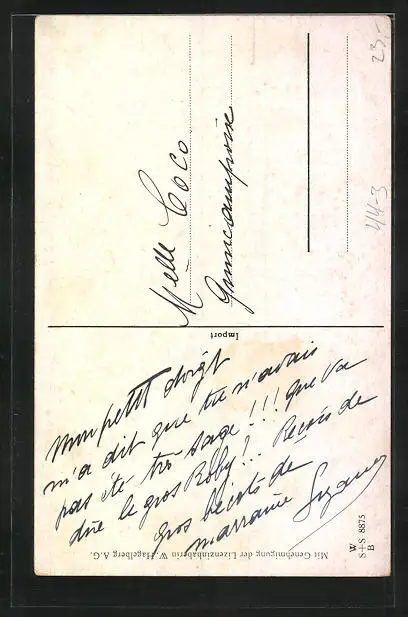 Mon petit doigt
m'a dit que tu n'avais
pas été très sage !!! que va
dire le gros Roby ?.. Reçois de
gros bécots de
marraine Suzanne
Melle Coco
Import
Mit Genehmigung der Lizenzinhaberin W. Hagelberg A.G.
W
S+S 8875
B
23,-
44-3